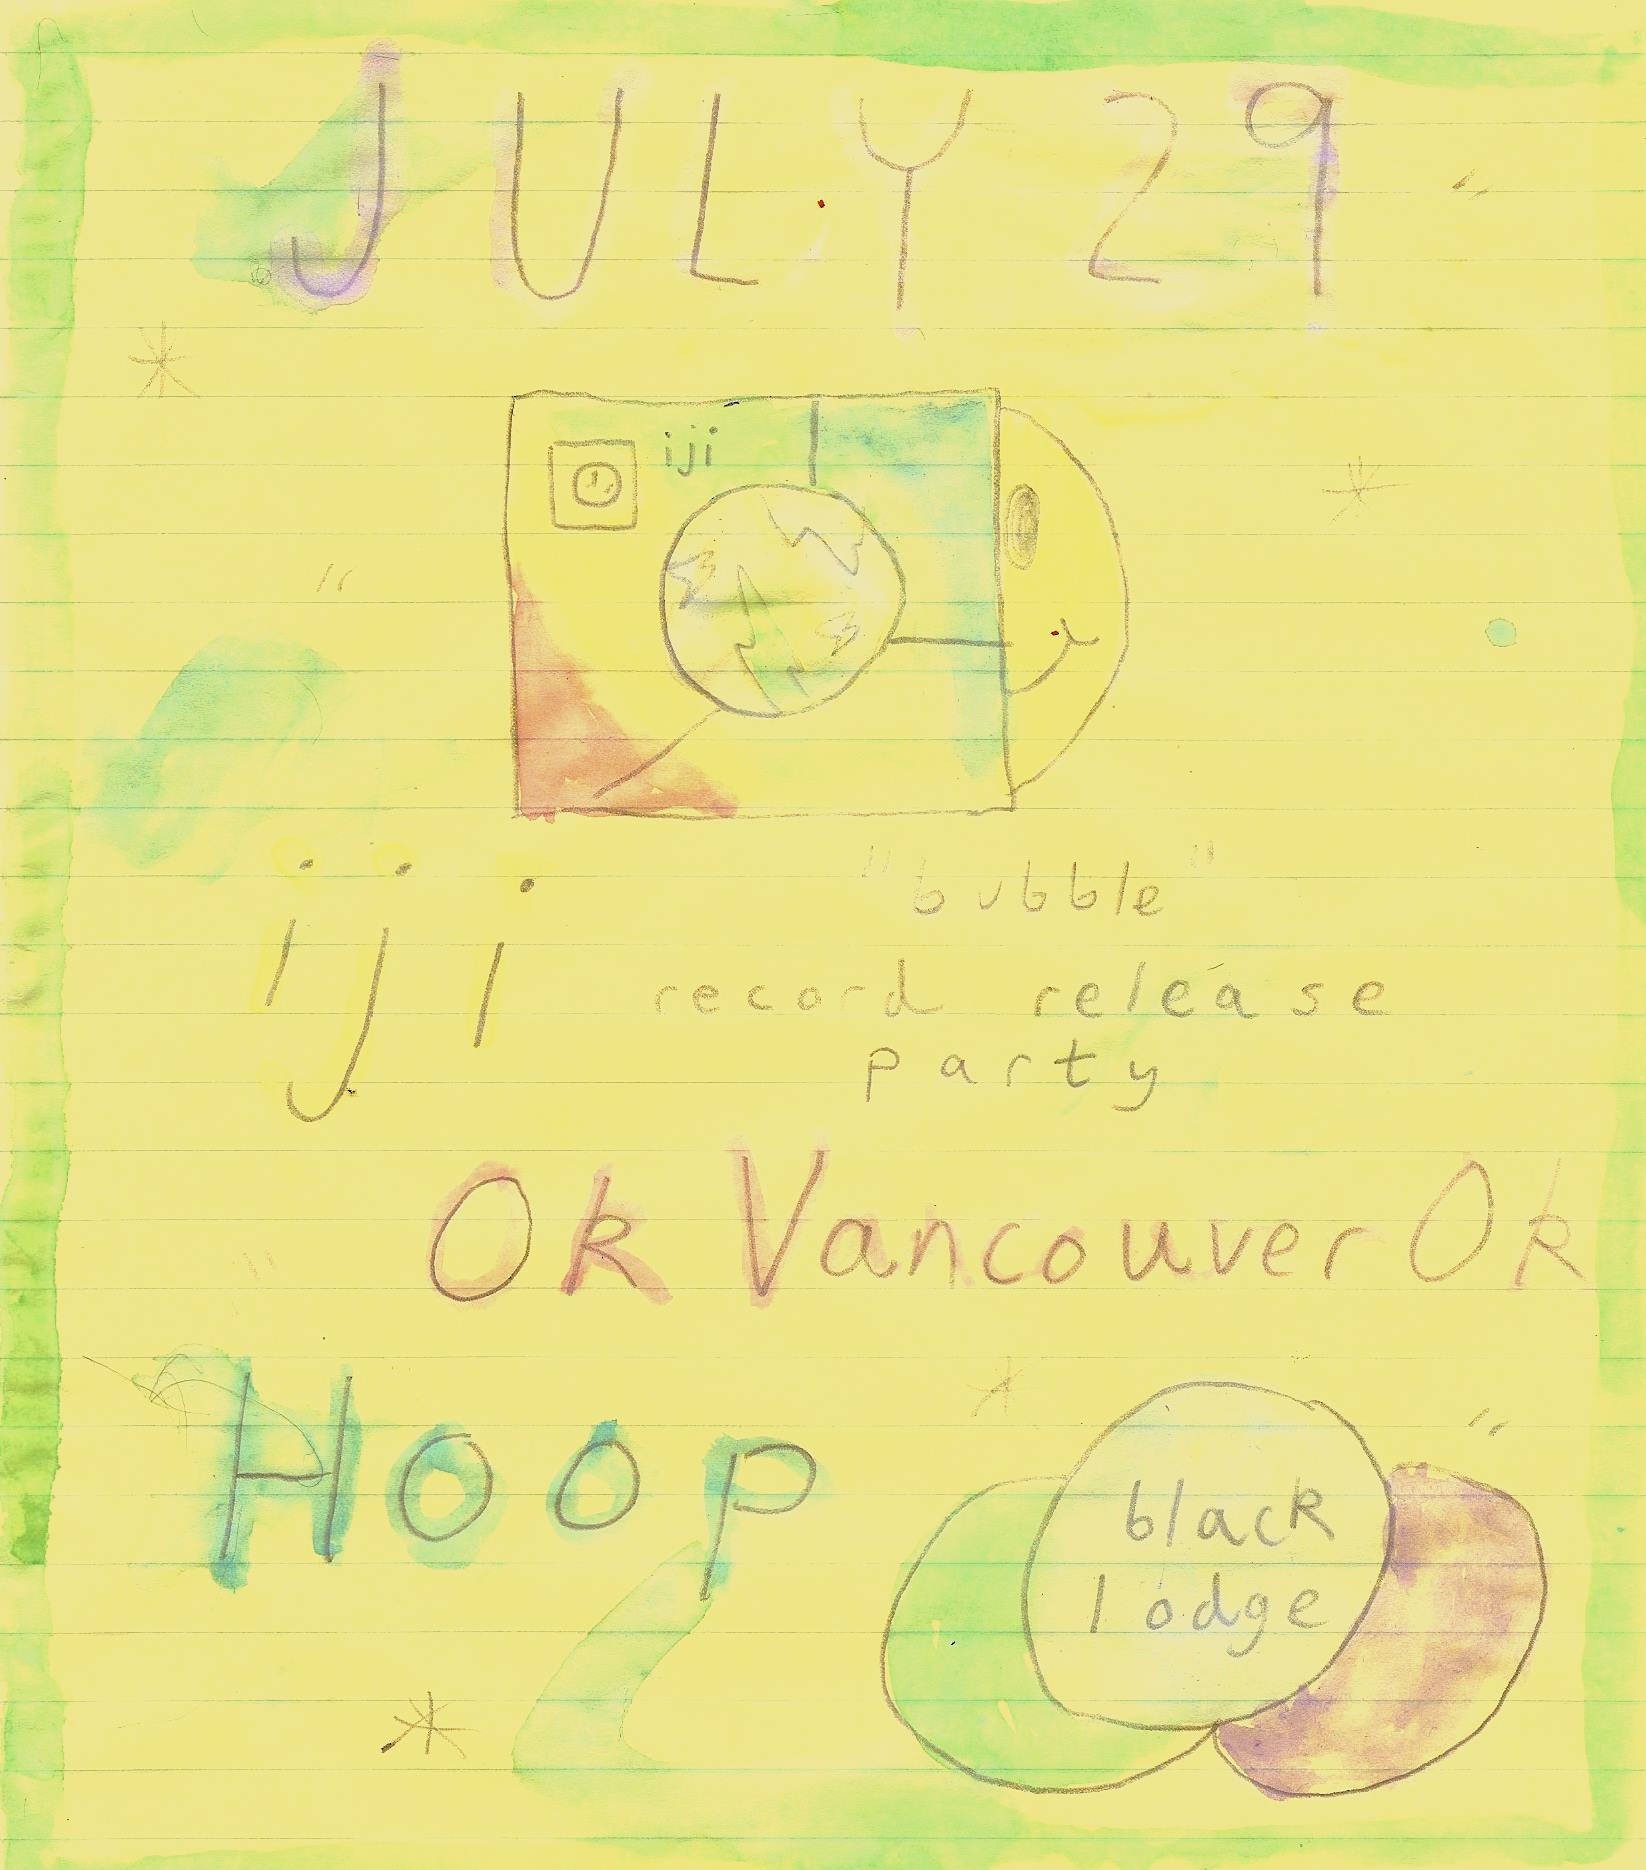 JULY 29
iji
iji
"bubble"
record release
party
Ok Vancouver Ok
Hoop
black
lodge